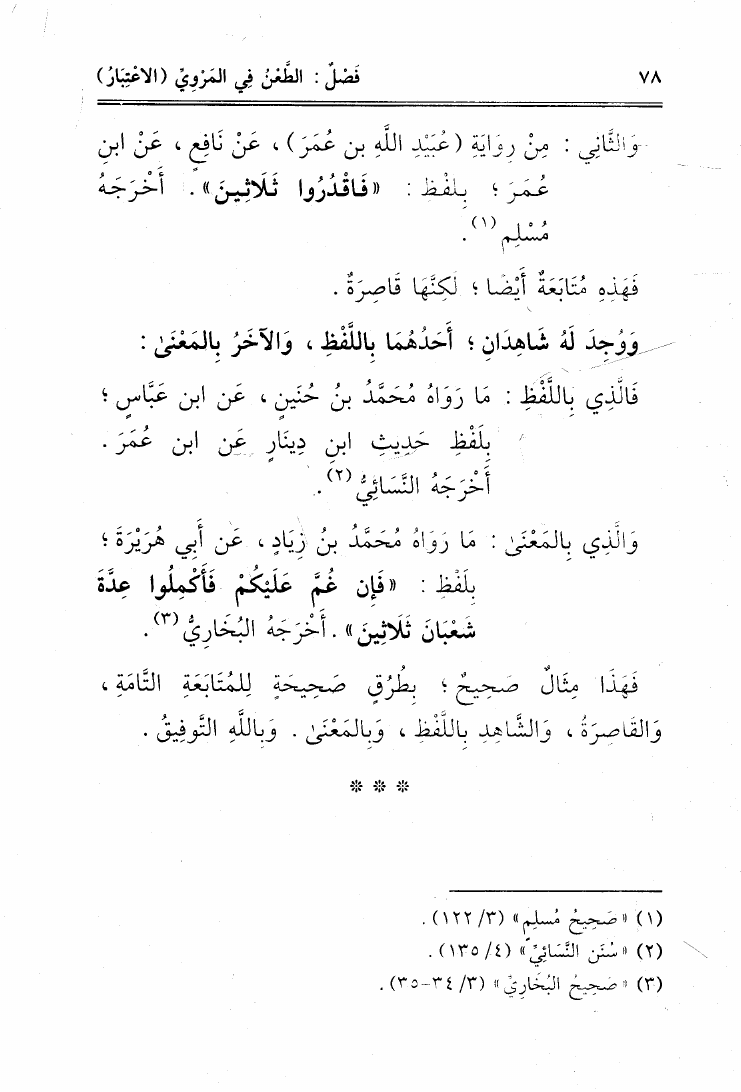 ٧٨ فَصْلٌ : الطَّعْنُ فِي المَرْوِيِّ (الاعْتِبَارُ)
وَالثَّانِي : مِنْ رِوَايَةِ (عُبَيْدِ اللَّهِ بن عُمَرَ) ، عَنْ نَافِعٍ ، عَنْ ابنِ
عُمَرَ ؛ بِلَفْظِ : «فَاقْدُرُوا ثَلَاثِينَ» . أَخْرَجَهُ
مُسْلِم(١).
فَهَذِهِ مُتَابَعَةٌ أَيْضًا ؛ لَكِنَّهَا قَاصِرَةٌ .
وَوُجِدَ لَهُ شَاهِدَانِ ؛ أَحَدُهُمَا بِاللَّفْظِ ، وَالآخَرُ بِالمَعْنَىٰ :
فَالَّذِي بِاللَّفْظِ : مَا رَوَاهُ مُحَمَّدُ بنُ حُنَينٍ ، عَن ابن عَبَّاسٍ ؛
بِلَفْظِ حَدِيثِ ابنِ دِينَارٍ عَن ابن عُمَرَ .
أَخْرَجَهُ النَّسَائِيُّ(٢).
وَالَّذِي بِالمَعْنَىٰ : مَا رَوَاهُ مُحَمَّدُ بنُ زِيَادٍ ، عَن أَبِي هُرَيْرَةَ ؛
بِلَفْظِ : «فَإِن غُمَّ عَلَيْكُمْ فَأَكْمِلُوا عِدَّةَ
شَعْبَانَ ثَلَاثِينَ» . أَخْرَجَهُ البُخَارِيُّ(٣).
فَهَذَا مِثَالٌ صَحِيحٌ ؛ بِطُرُقٍ صَحِيحَةٍ لِلمُتَابَعَةِ التَّامَةِ ،
وَالقَاصِرَةُ ، وَالشَّاهِدِ بِاللَّفْظِ ، وَبِالمَعْنَىٰ . وَبِاللَّهِ التَّوفِيقُ .
* * *
(١) «صَحِيحُ مُسلِمٍ» (٣/ ١٢٢) .
(٢) «سُنَن النَّسَائِيِّ» (٤/ ١٣٥) .
(٣) «صَحِيحُ البُخَارِيِّ» (٣/ ٣٤-٣٥) .